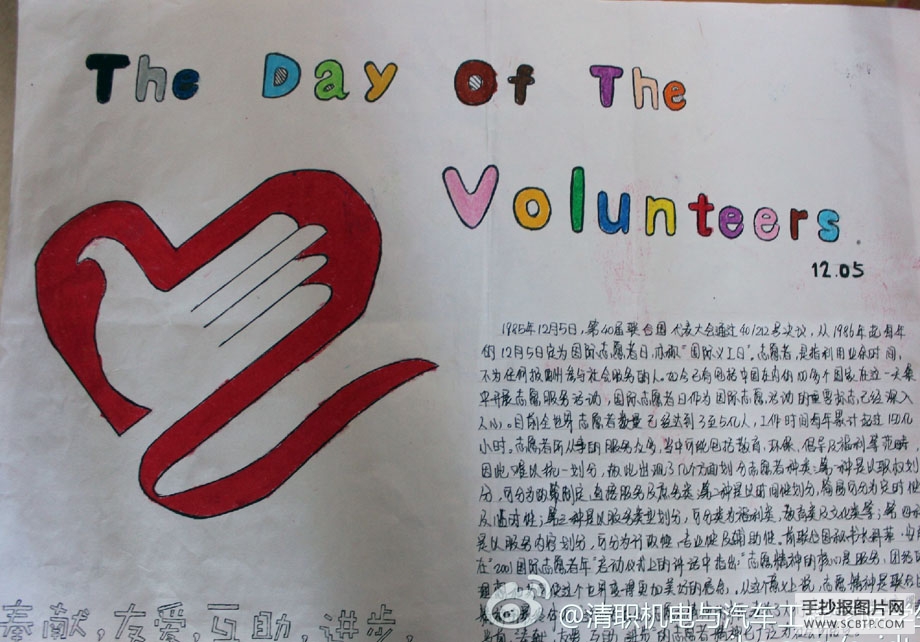 The Day Of The
Volunteers
12.05
1985年12月5日,第40届联合国代表大会通过40/212号决议,从1986年起每年
的12月5日定为国际志愿者日,亦称“国际义工日”。志愿者,是指利用业余时间,
不为任何报酬参与社会服务的人。如今已有包括中国在内的
开展志愿服务活动,国际志愿者日作为国际志愿活动的重要标志已经深入
人心。目前全世界志愿者数量已经达到3至5亿人,工作时间每年累计超过150亿
小时。志愿者所从事的服务众多,当中可能包括教育、环保、倡导及福利等范畴,
因此,难以统一划分,故此出现了几个方面划分志愿者种类:第一种是以职权划
分,可分为政策制定、直接服务及庶务类;第二种是以时间性划分,简易可分为定时性
及临时性;第三种是以服务类型划分,可分类为福利类,教育类及文化类等;第四种
是以服务内容划分,可分为行政性、专业性及辅助性。前联合国秘书长科菲·安
在“2001国际志愿者年”启动仪式上的讲话中指出:“志愿精神的核心是服务、团结的
使这个世界变得更加美好的信念。从这个意义上说,志愿精神是联合
奉献,友爱,互助,进步,
@清职机电与汽车工
手抄报图片网
WWW.SCBTP.COM